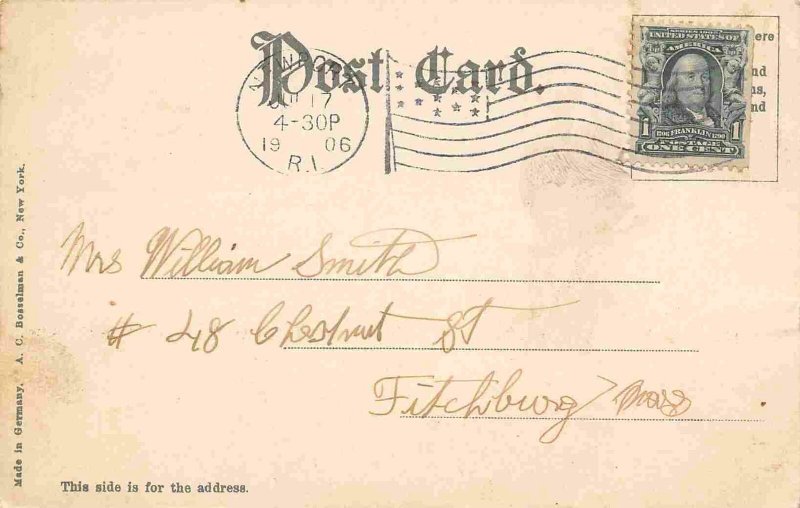 Post Card.
NEWPORT
JUL 17
4-30P
19 06
R.I.
SERIES 1902
UNITED STATES OF
AMERICA
1 1706 FRANKLIN 1790 1
POSTAGE
ONE CENT
ere
nd
ns,
nd
Mrs William Smith
# 48 Chestnut St
Fitchburg Mass
Made in Germany. A. C. Bosselman & Co., New York.
This side is for the address.